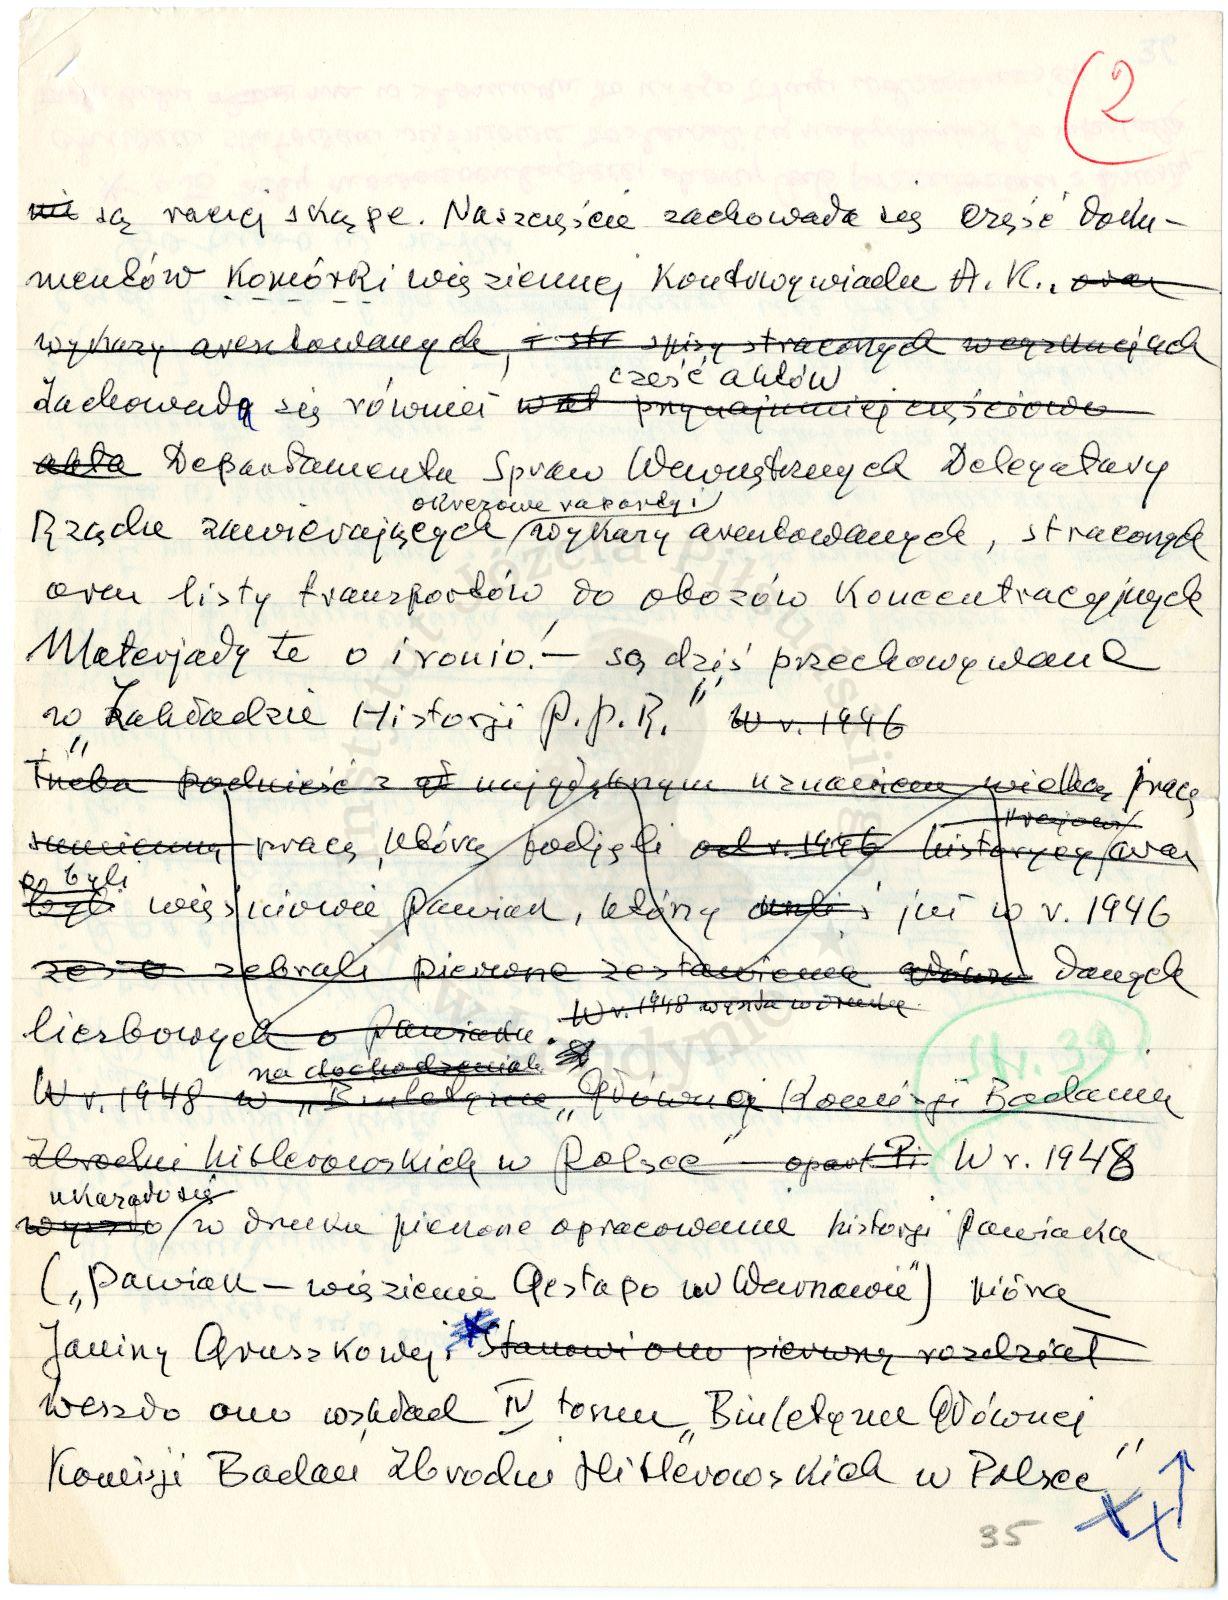 2
są raczej skąpe. Naszczęście zachowała się część doku-
mentów Komórki więziennej Kontrwywiadu A.K., oraz
wykazy aresztowanych, spisy straconych w egzekucjach
część aktów
Zachowały się również przynajmniej częściowo
akta Departamentu Spraw Wewnętrznych Delegatury
okresowe raporty i
Rządu zawierających wykazy aresztowanych, straconych
oraz listy transportów do obozów koncentracyjnych
Materjały te o ironio! – są dziś przechowywane
w „Zakładzie Historji P.P.R.” W r. 1946
Trzeba podnieść z najgłębszym uznaniem wielką pracę
sumienną pracę, którą podjęli od r. 1946 historycy oraz
krajowi
b. byli
byli więźniowie Pawiak, którzy już w r. 1946
zebrali pierwsze zestawienie danych
liczbowych o Pawiaku.
W r. 1948 wyszła w druku
na dochodzeniach
W r. 1948 w „Biuletynie „Głównej Komisji Badania
Str. 39
Zbrodni hitlerowskich w Polsce” W r. 1948
ukazało się
wyszło w druku pierwsze opracowanie historji Pawiaka
(„Pawiak – więzienie Gestapo w Warszawie”) pióra
Janiny Gruszkowej. Stanowi ono pierwszy rozdział
weszło ono wskład IV tomu „Biuletynu Głównej
Komisji Badań Zbrodni Hitlerowskich w Polsce”
XX
35
Instytut Józefa Piłsudskiego
w Londynie